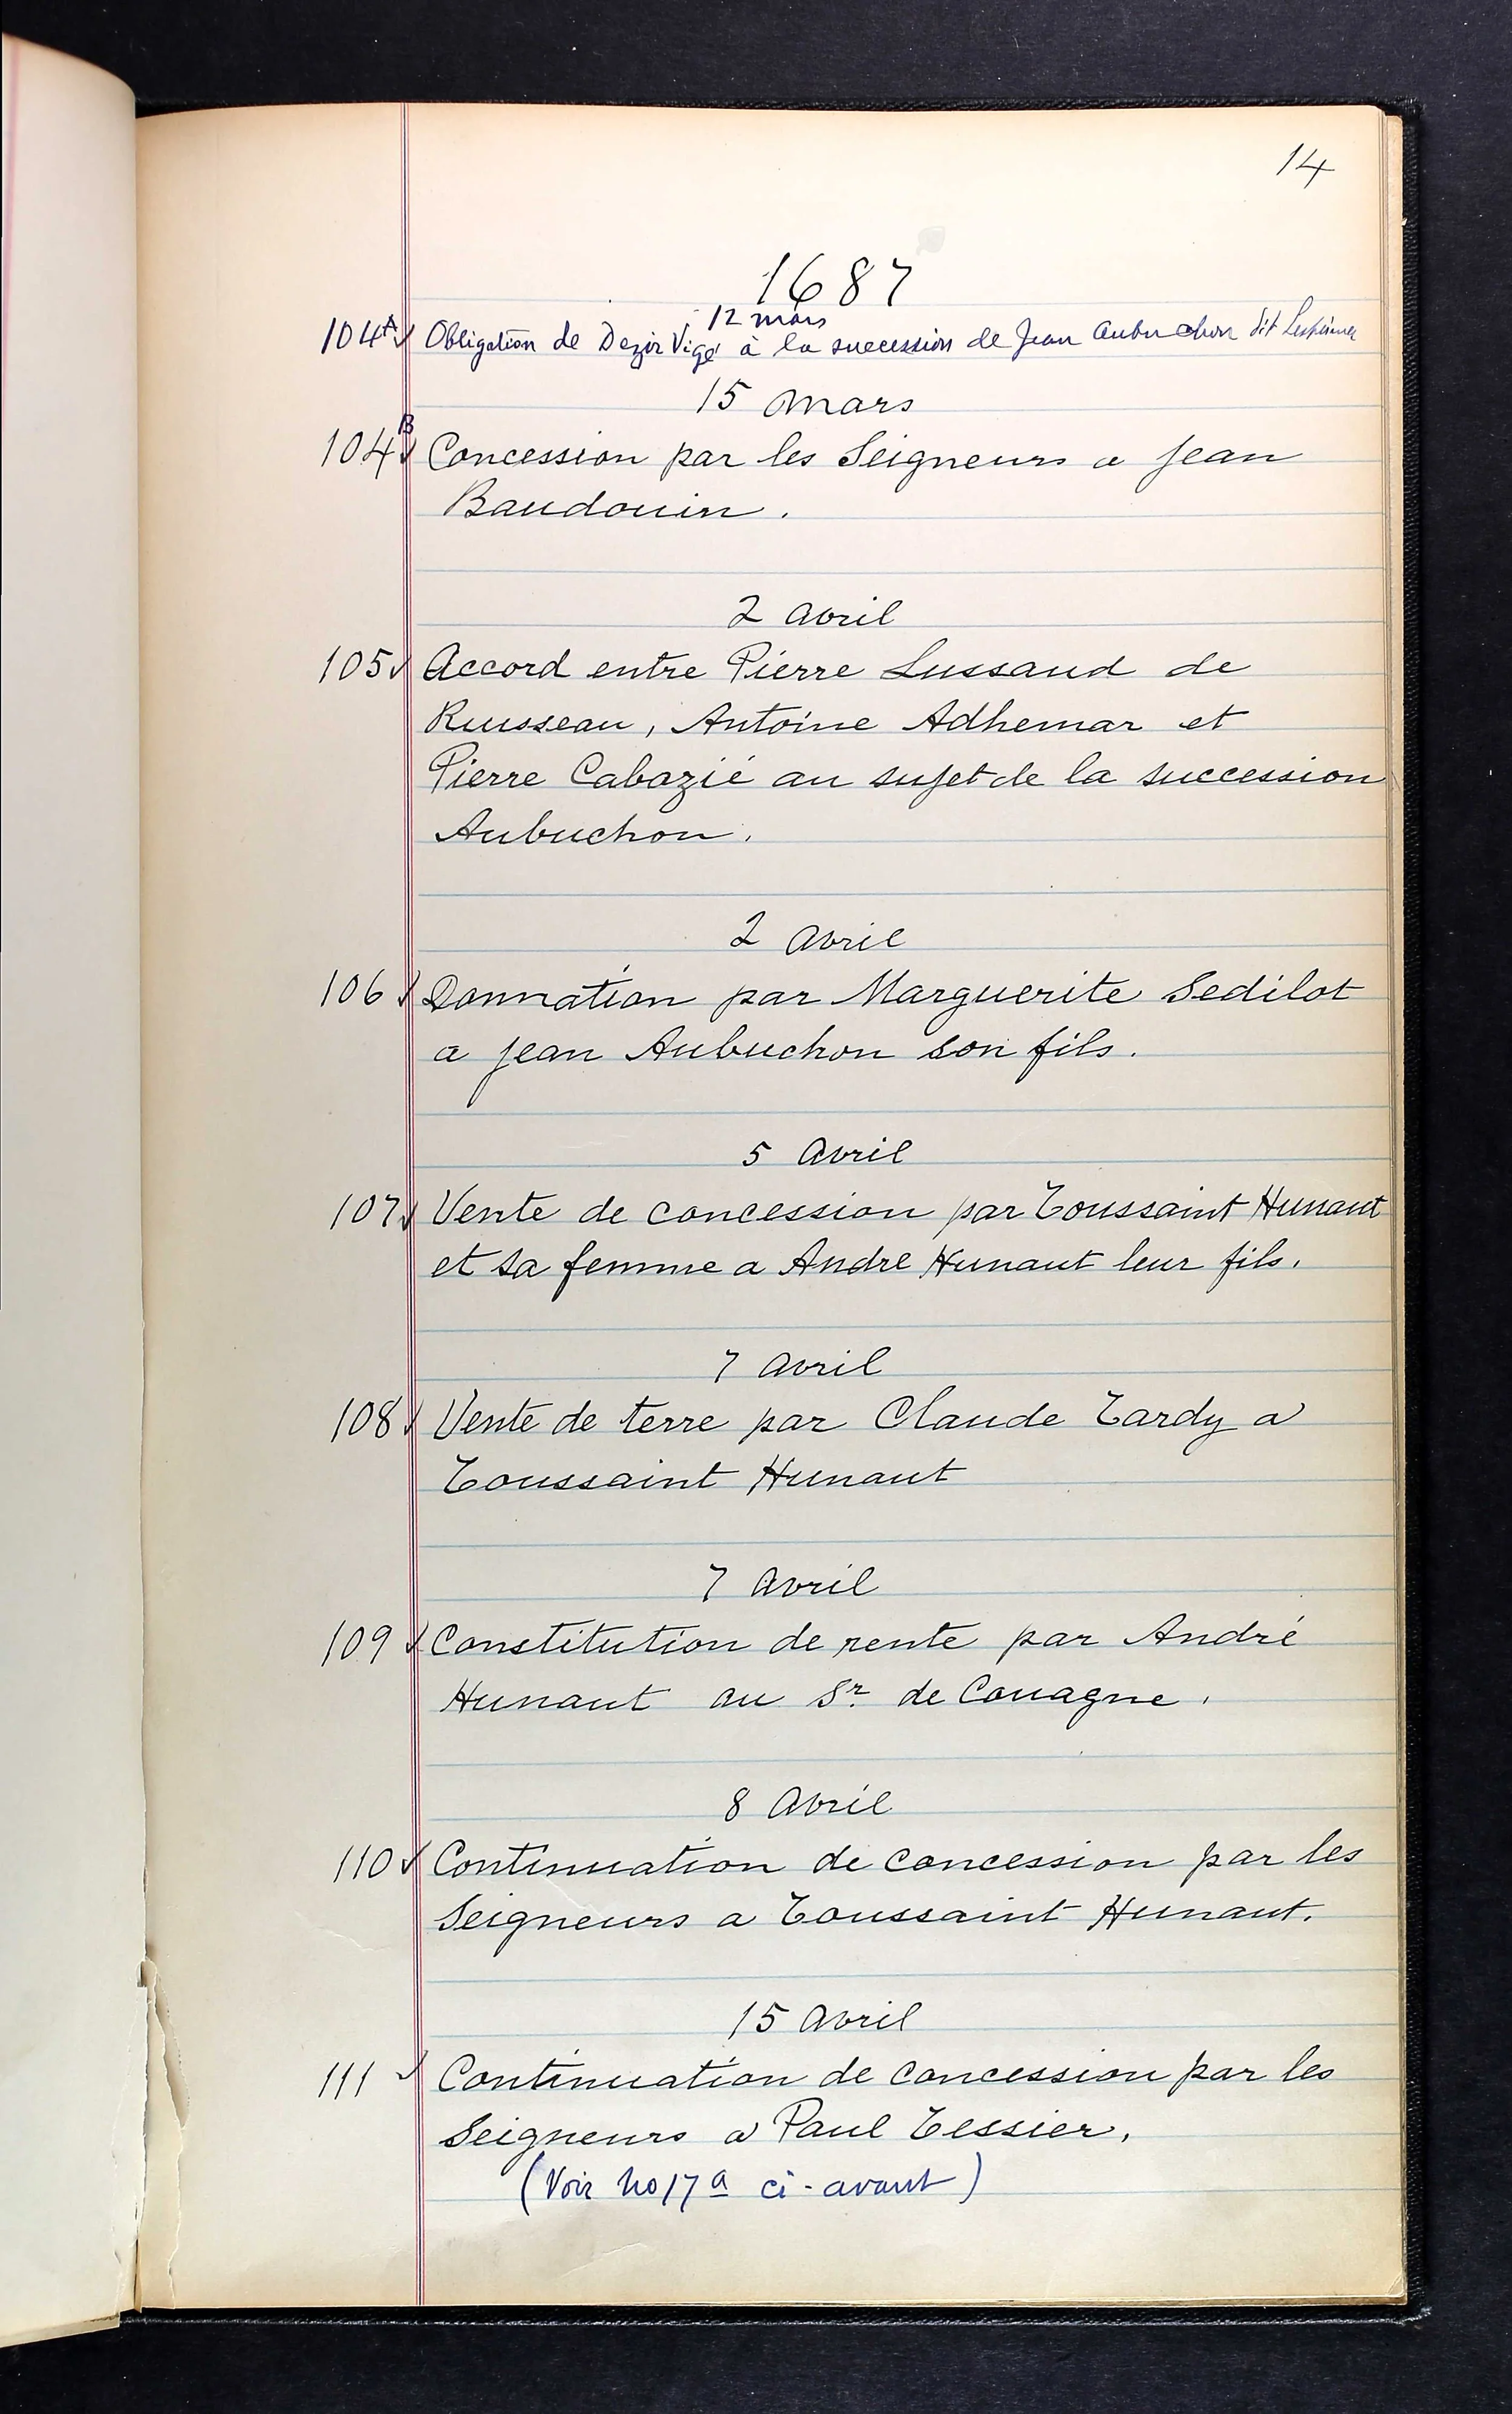 14
1687
12 mars
104A✓ Obligation de Dezir Viger à la succession de Jean Aubuchon dit
15 Mars
104B✓ Concession par les Seigneurs a Jean
Baudouin.
2 Avril
105✓ Accord entre Pierre Lussaud de
Russeau, Antoine Adhemar et
Pierre Cabazié au sujet de la succession
Aubuchon.
2 Avril
106✓ Donnation par Marguerite Sedilot
a Jean Aubuchon son fils.
5 Avril
107✓ Vente de concession par Toussaint Hunaut
et sa femme a Andre Hunaut leur fils.
7 Avril
108✓ Vente de terre par Claude Tardy a
Toussaint Hunaut
7 Avril
109✓ Constitution de rente par André
Hunaut au Sr. de Couagne.
8 Avril
110✓ Continuation de concession par les
Seigneurs a Toussaint Hunaut.
15 Avril
111✓ Continuation de concession par les
Seigneurs a Paul Tessier.
(Voir no 17a ci-avant)